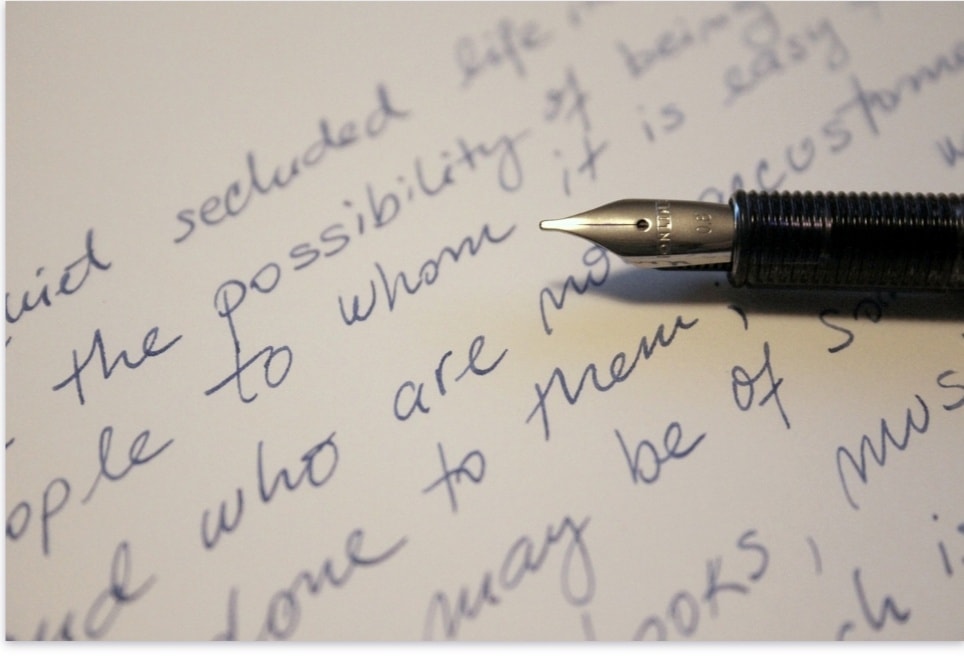 uiet secluded life in
the possibility of being
ople to whom it is easy
nd who are no accustome
done to them, w
may be of so
ooks, mus
ch is
0.8